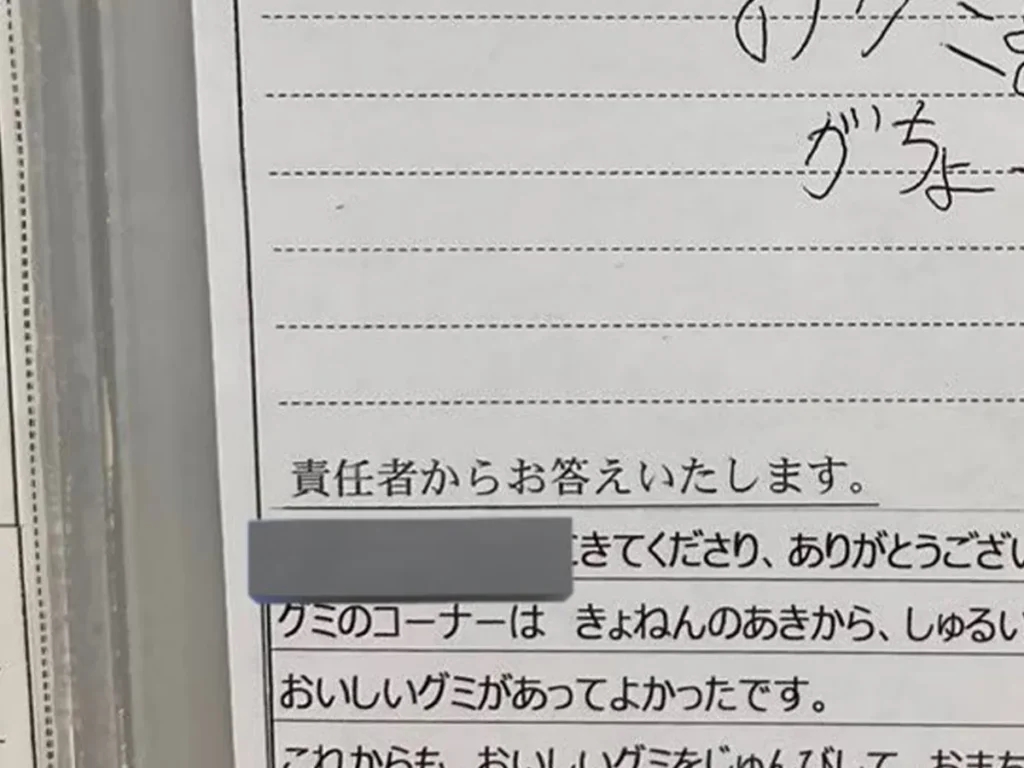 がちょー
責任者からお答えいたします。
きてくださり、ありがとうござい
グミのコーナーは きょねんのあきから、しゅるい
おいしいグミがあってよかったです。
これからも、おいしいグミをじゅんびして、おまち